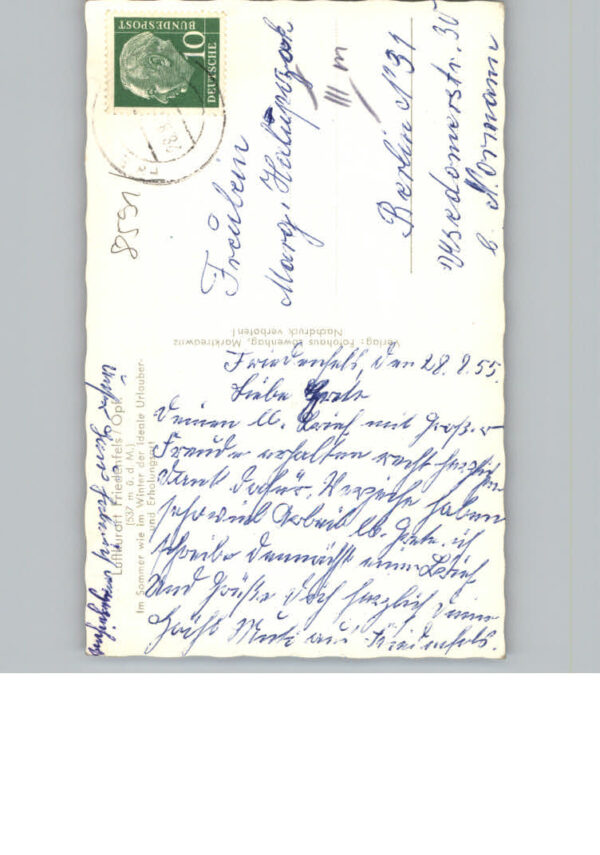 DEUTSCHE
BUNDESPOST
10
8591
Fräulein
Marg. Halupczok
III m
Berlin N 31
Usedomerstr. 30
b. Normann
Verlag: Fotohaus Lowenhag, Marktredwitz
Nachdruck verboten!
Luftkurort Friedenfels / Opf.
(537 m ü. d. M.)
Im Sommer wie im Winter der ideale Urlauber-
und Erholungsort
Friedenfels, den 28.9.55.
Liebe Grete
Deinen lb. Brief mit großer
Freude erhalten recht herzlichen
Dank dafür. Verzeihe haben
sehr viel Arbeit lb. Grete. ich
schreibe demnächst einen Brief
und Grüße Dich herzlich Deine
Mutti aus Friedenfels.